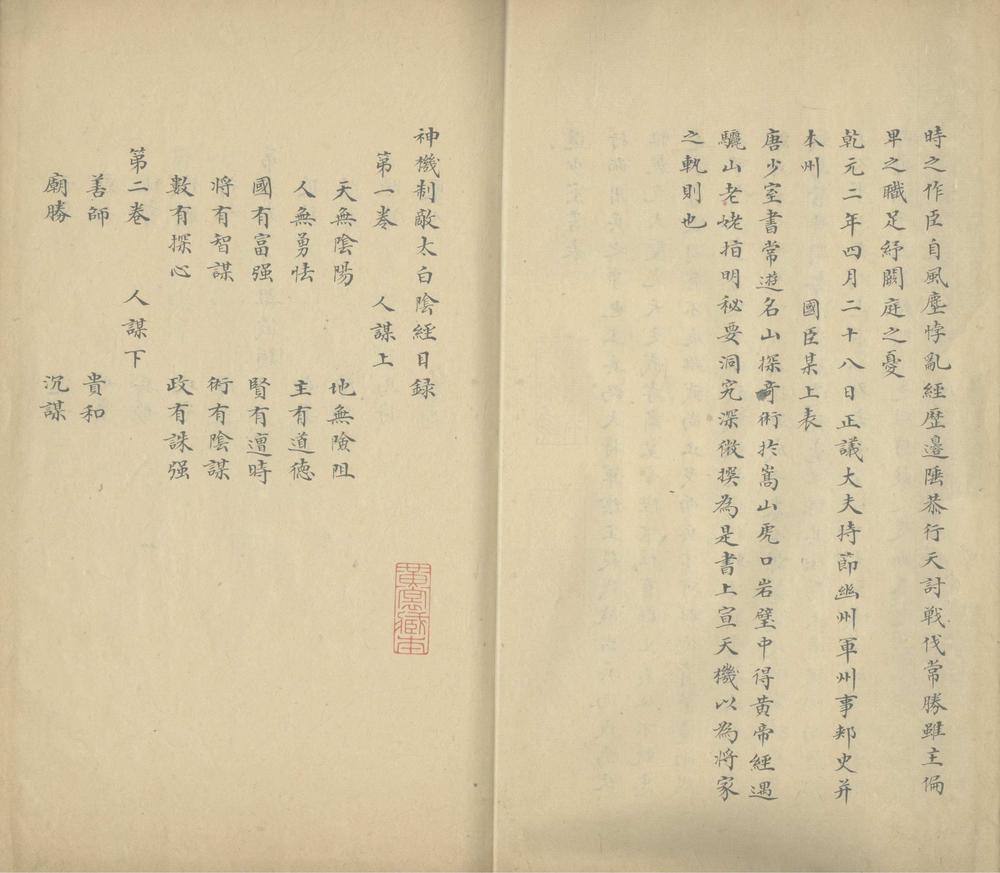 時之作臣自風塵悖亂經歷邊陲恭行天討戰伐常勝雖主偏
卑之職足紓闕庭之憂
乾元二年四月二十八日正議大夫持節幽州軍州事邦史并
本州 國臣某上表
唐少室書常遊名山探奇術扵嵩山虎口岩壁中得黄帝經遇
驪山老姥指明秘要洞究深微撰為是書上宣天機以為將家
之軌則也
神機制敵太白陰經目録
第一卷 人謀上
天無陰陽 地無險阻
人無勇怯 主有道徳
國有富强 賢有遭時
將有智謀 術有陰謀
數有探心 政有誅强
第二卷 人謀下
善師 貴和
廟勝 沉謀